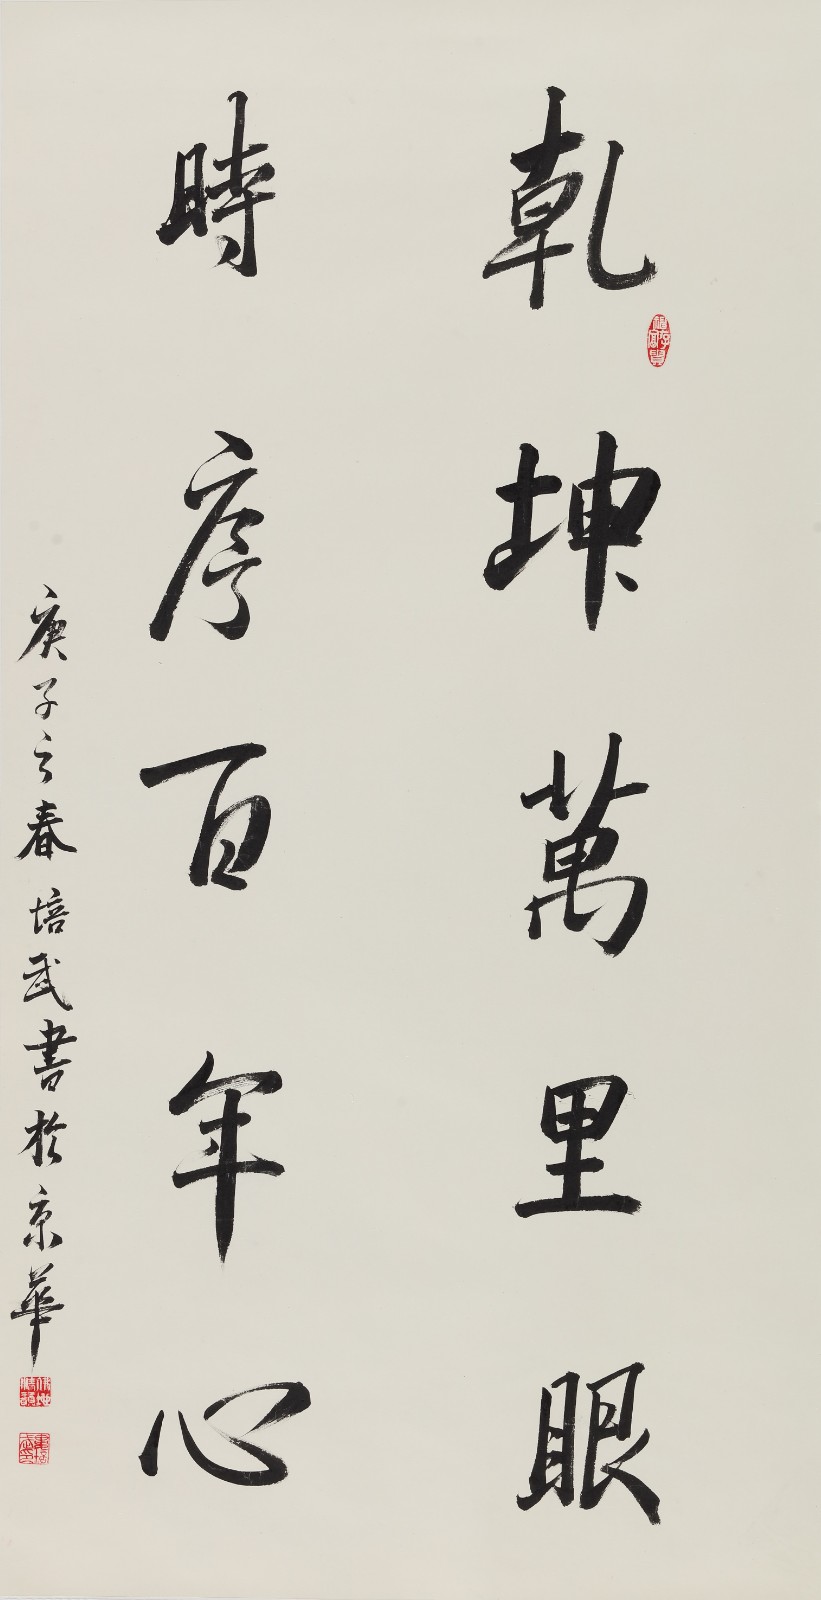 乾坤萬里眼
時序百年心
庚子之春培武書於京華